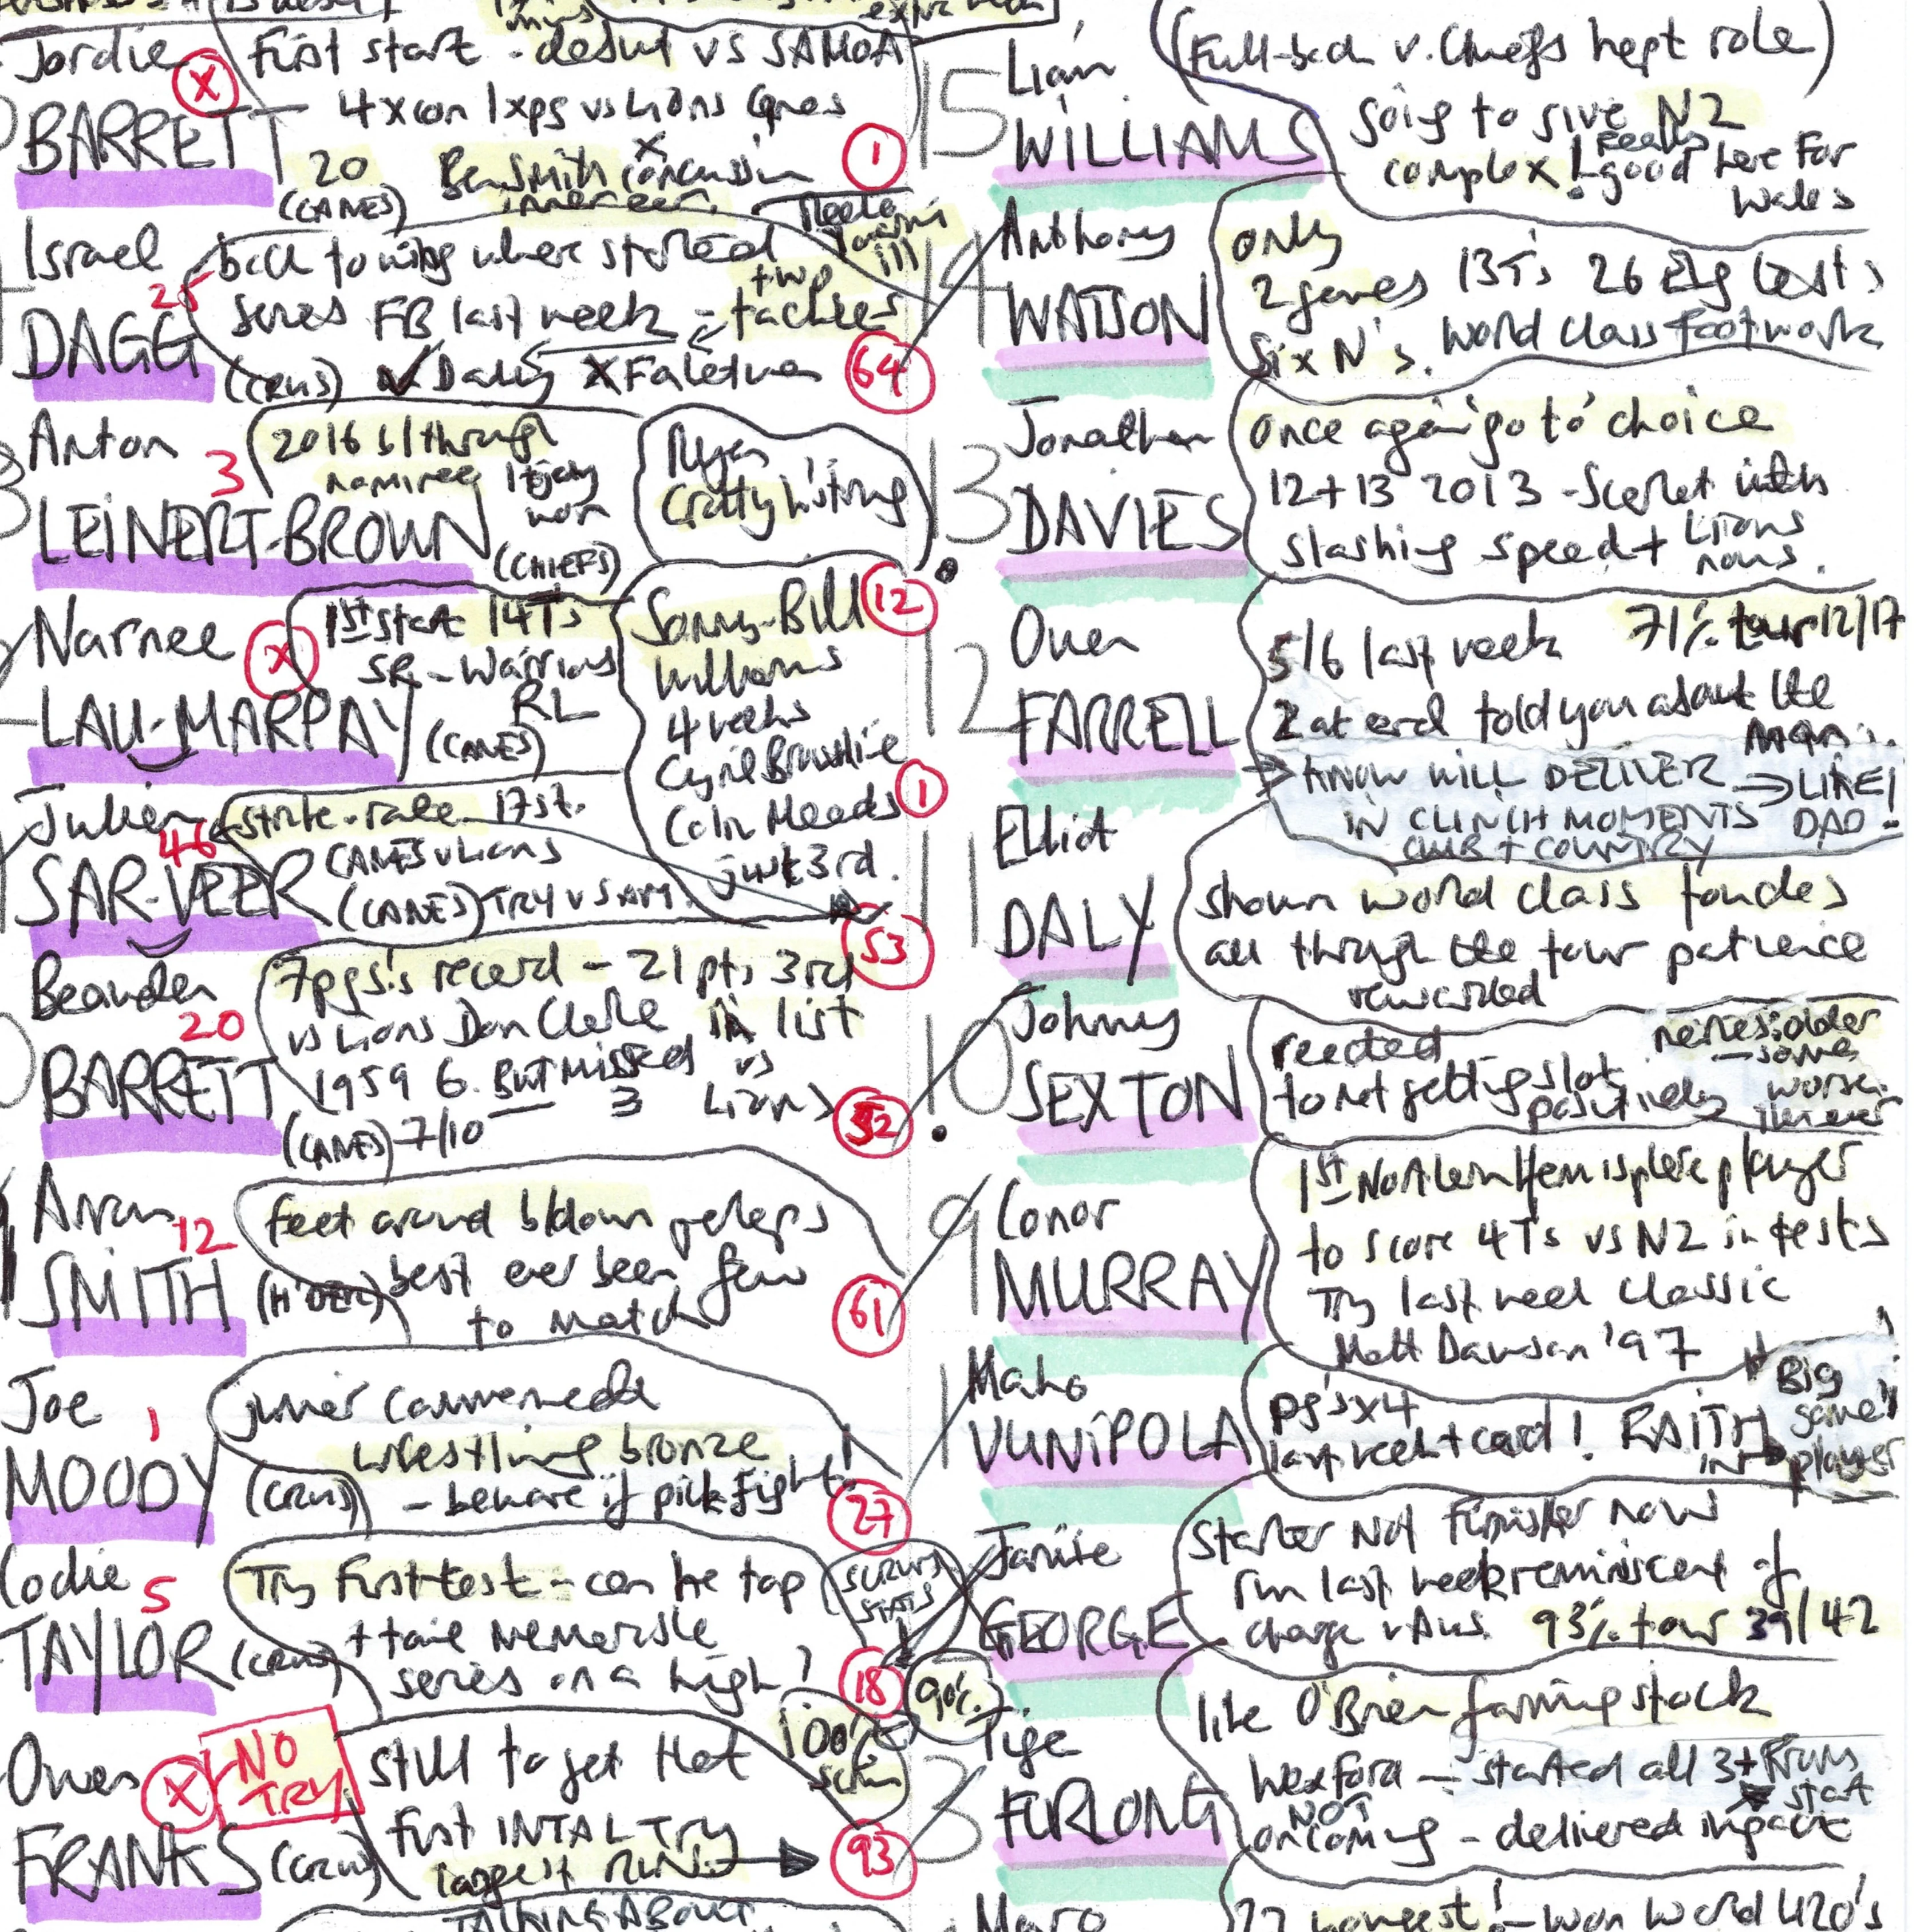 Jordie
BARRETT
X
First start - debut vs SAMOA
4 x con 1 x pg vs Lions Canes
20
(CANES)
Ben Smith x concussion
inner ear.
1
Israel
25
DAGG
back to wing where started
series FB last week - two tackles
(CRUS) ✓ Daly X Faletau
64
Anton
3
LEINERT-BROWN
2016 b/through
nominee
won
(CHIEFS)
Ryan
Crotty h/string
12
Narnee
X
LAU-MARPAY
1st start 14Ts
SR - Warriors
RL
(CANES)
Sonny-Bill
Williams
4 weeks
Cyril Brownlie
Colin Meads
just 3rd.
1
Julien
46
SAR-VEER
strike-rate 17st.
CANES v Lions
(CANES) TRY v SAM.
53
Beauden
20
BARRETT
7pgs's record - 21 pts 3rd
vs Lions Don Clarke in list
1959 6. But missed vs
3 Lions
(CANES) 7/10
52
Aron
12
SMITH
feet around b/down perhaps
best ever been few
to match
61
Joe
1
MOODY
junior commonwealth
wrestling bronze
(CRUS) - beware if pick fight!
27
Codie
5
TAYLOR (CRUS)
Try First test - can he top
+ tail memorable
series on a high!
SCRUMS
STATS
18
90%
100%
scrum
Owen
X
NO
TRY
FRANKS (CRUS)
still to get that
first INTAL TRY
longest RUNS
93
TALKING ABOUT
15
Liam
WILLIAMS
(Full-back v. Chiefs kept role)
going to give NZ
complex! really good here for
Wales
14
Anthony
WATSON
only
2 games
Six N's.
13Ts 26 Eng tests
world class footwork
13
Jonathan
DAVIES
once again 'go to' choice
12+13 2013 - Scarlet with
slashing speed + Lions
nous.
12
Owen
FARRELL
5/6 last week 71% tour 12/17
2 at end told you about the
man..
KNOW WILL DELIVER → LIKE
IN CLINCH MOMENTS DAD!
CLUB + COUNTRY
11
Elliot
DALY
shown world class touches
all through the tour patience
rewarded
10
Johnny
SEXTON
reacted
to not getting slot
positively
older
some
worse.
9
Conor
MURRAY
1st Northern Hemisphere player
to score 4Ts vs NZ in tests
Try last week classic
Matt Dawson '97
1
Mako
VUNIPOLA
pg's x4
last week + card! FAITH
IN
Big
game
player
Jamie
GEORGE
Starter Not Finisher now
run last week reminiscent of
charge v Aus. 93% tour 39/42
3
Tige
FURLONG
like O'Brien farming stock
Wexford - started all 3 +
start
NOT
oncoming - delivered impact
Maro
22 honest! - won World U20's